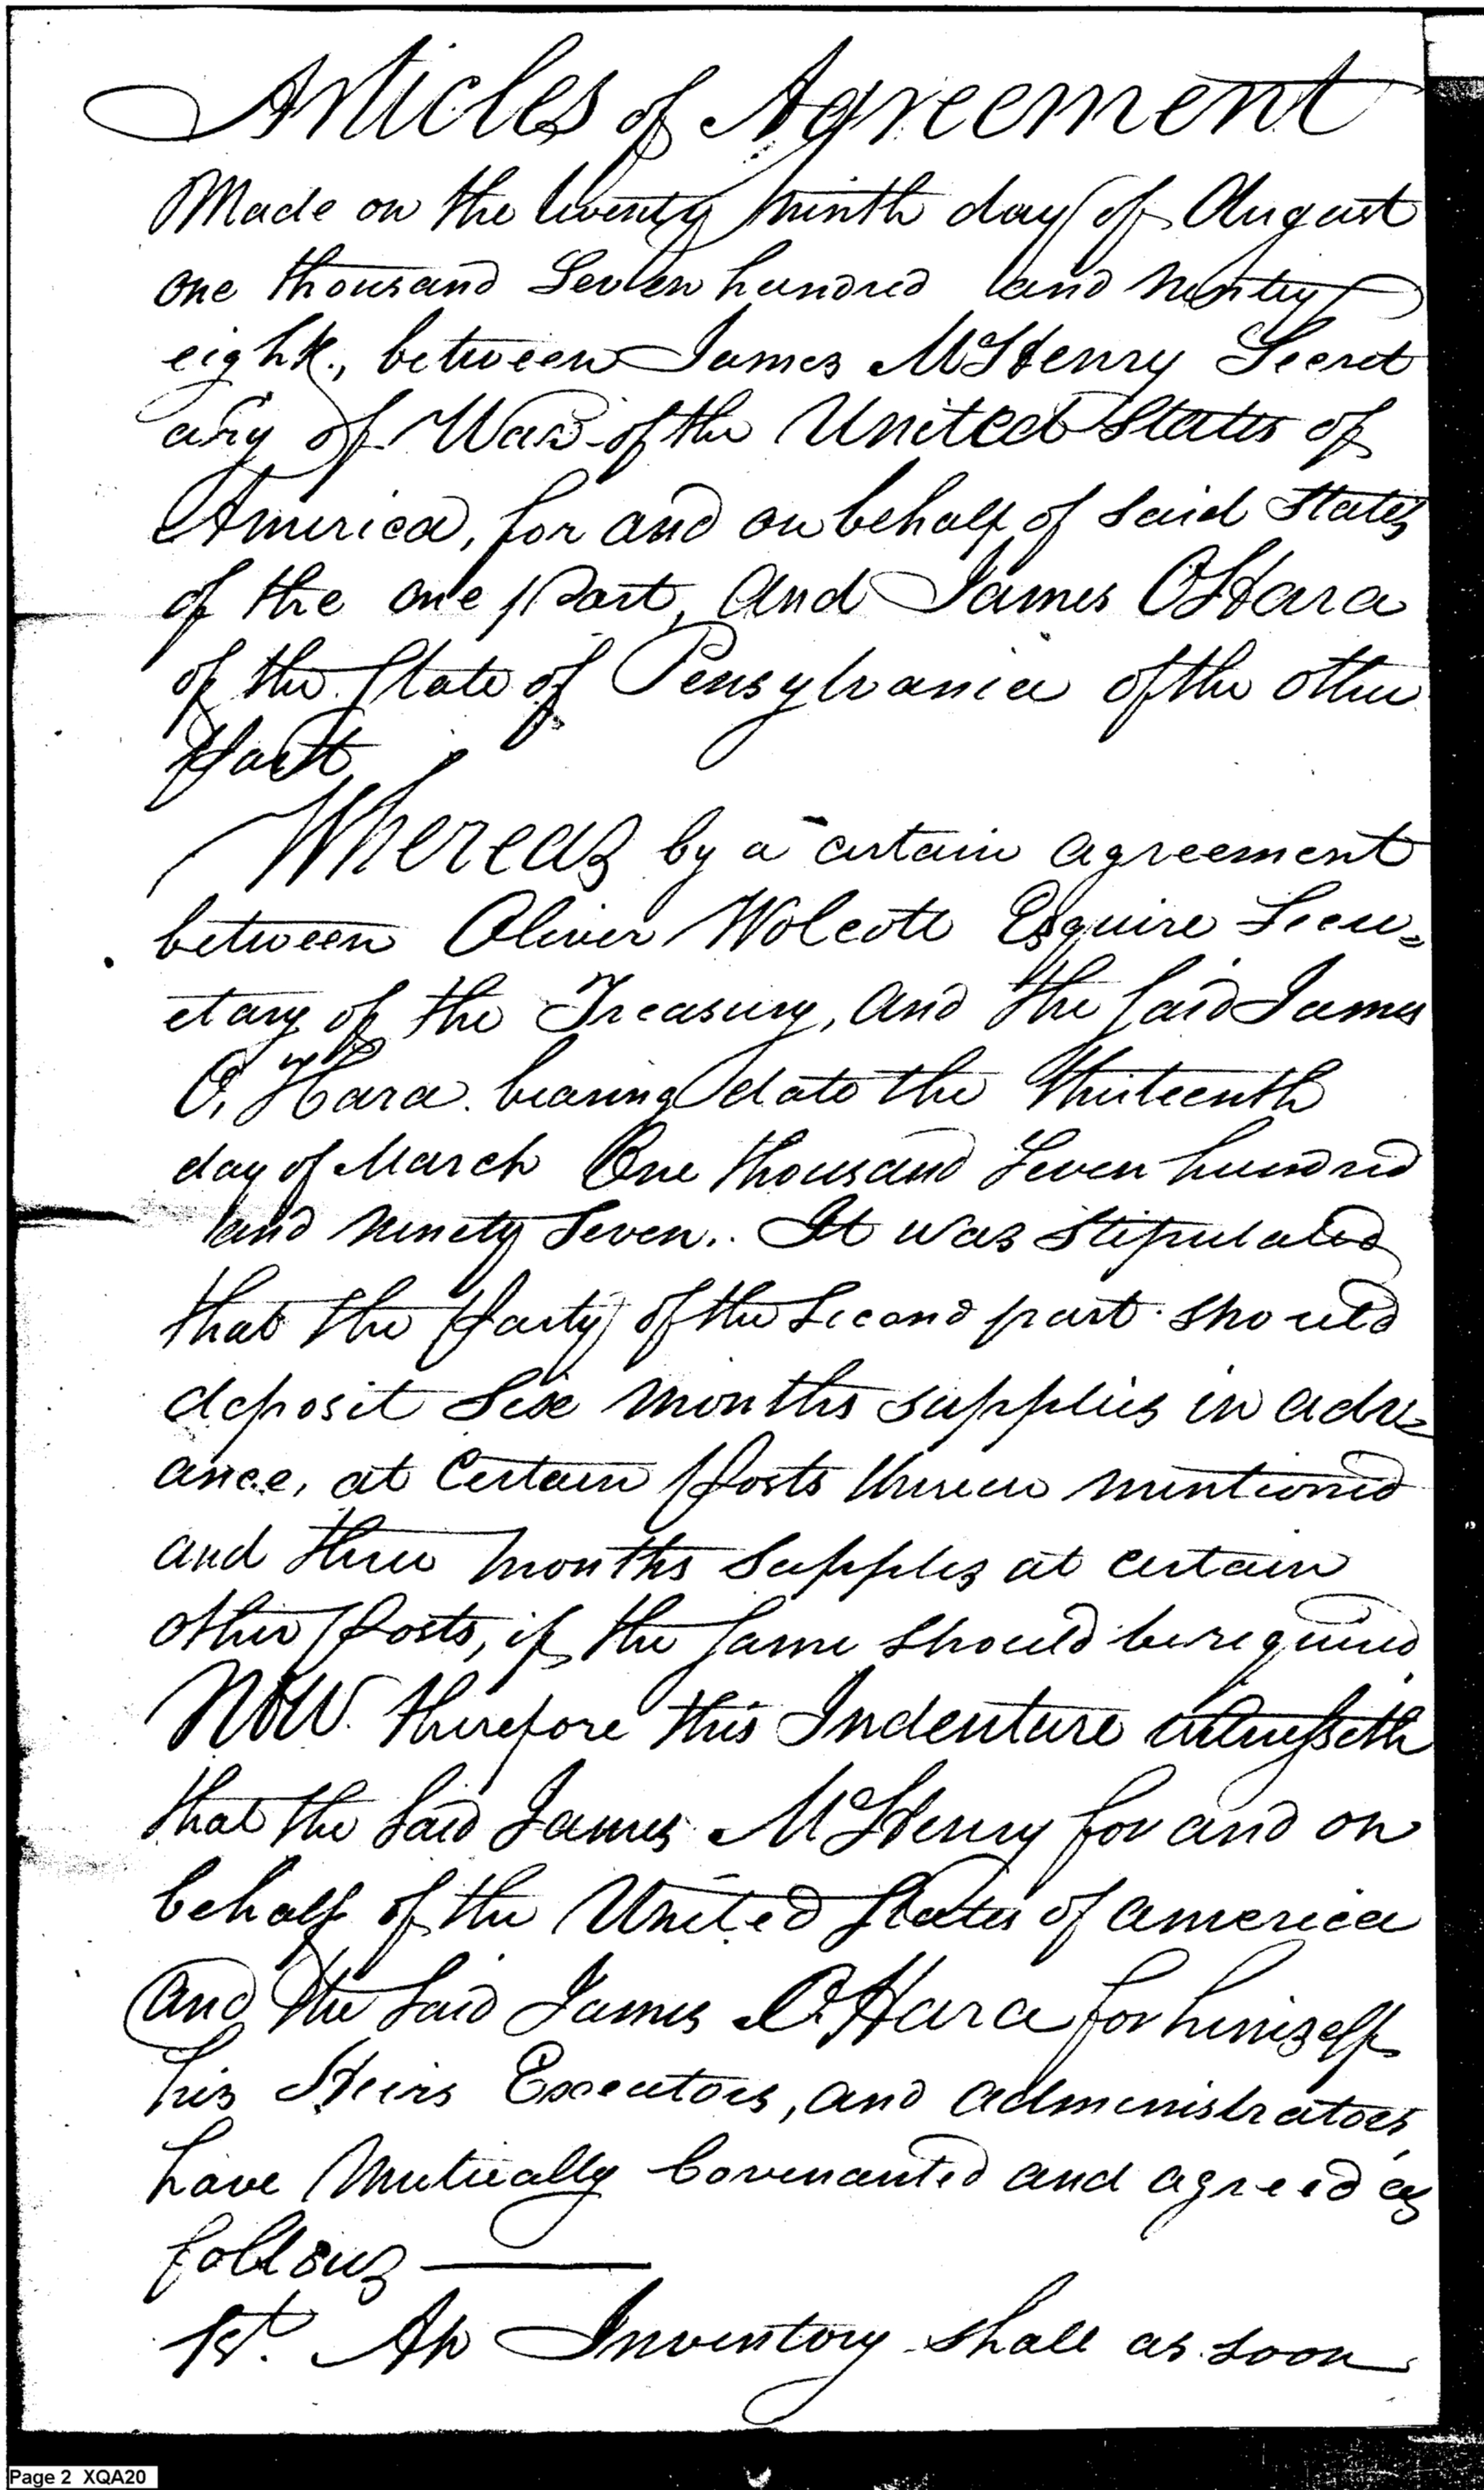 Articles of Agreement
Made on the twenty ninth day of August
one thousand Seven hundred and ninty
eight, between James McHenry Secret
ary of War of the United States of
America, for and on behalf of said States
of the one part, and James OHara
of the State of Pensylvania of the other
part
Whereas by a certain agreement
between Oliver Wolcott Esquire Secre=
etary of the Treasury, and the said James
O, Hara. bearing date the thirteenth
day of March One thousand Seven hundred
and ninety Seven.. It was stipulated
that the party of the Second part should
deposit Six months supplies in adv=
ance, at Certain posts therein mentioned
and three months Supples at certain
other posts, if the same should be required
Now therefore this Indenture witnesseth
that the said James McHenry for and on
behalf of the United States of america
and the said James O.Hara for himself
his Heirs Executors, and administrators,
have mutually Covenanted and agreed as
follows
1st. An Inventory shall as soon
Page 2 XQA20